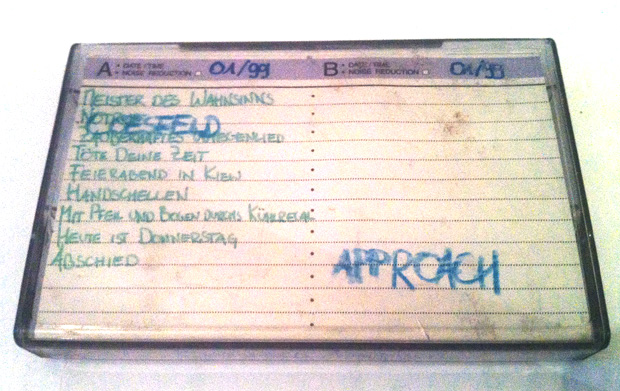 A • DATE/TIME
• NOISE REDUCTION
01/99
B • DATE/TIME
• NOISE REDUCTION
01/99
MEISTER DES WAHNSINNS
COESFELD
TÖTE DEINE ZEIT
FEIERABEND IN KIEW
HANDSCHELLEN
MIT PFEIL UND BOGEN DURCHS
HEUTE IST DONNERSTAG
ABSCHIED
APPROACH